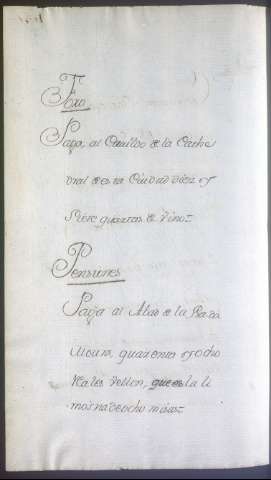 Foro
Paga al Cavildo de la Cathe
dral de esta Ciudad diez y
siete quartas de vino=
Pensiones
Paga al Abad de la
quarenta y ocho
reales vellon, que es la li
mosna de ocho misas=